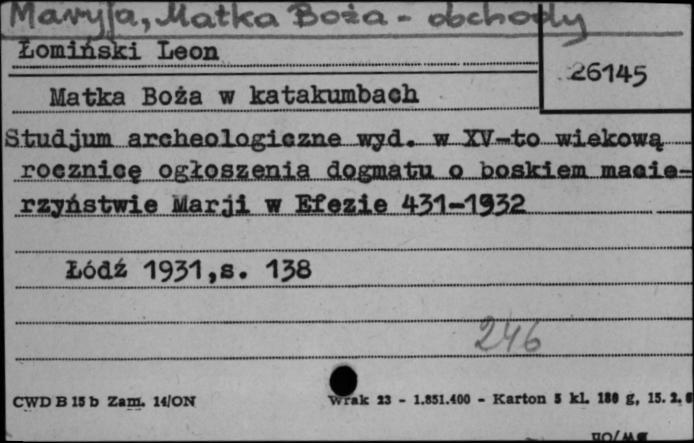 Maryja, Matka Boża - obchody
Łomiński Leon
26145
Matka Boża w katakumbach
Studjum archeologiczne wyd. w XV-to wiekową
rocznicę ogłoszenia dogmatu o boskiem macie-
rzyństwie Marji w Efezie 431-1932
Łódź 1931,s. 138
246
CWD B 15 b Zam. 14/ON
Wrak 23 - 1.851.400 - Karton 5 kl. 180 g, 15. 2.